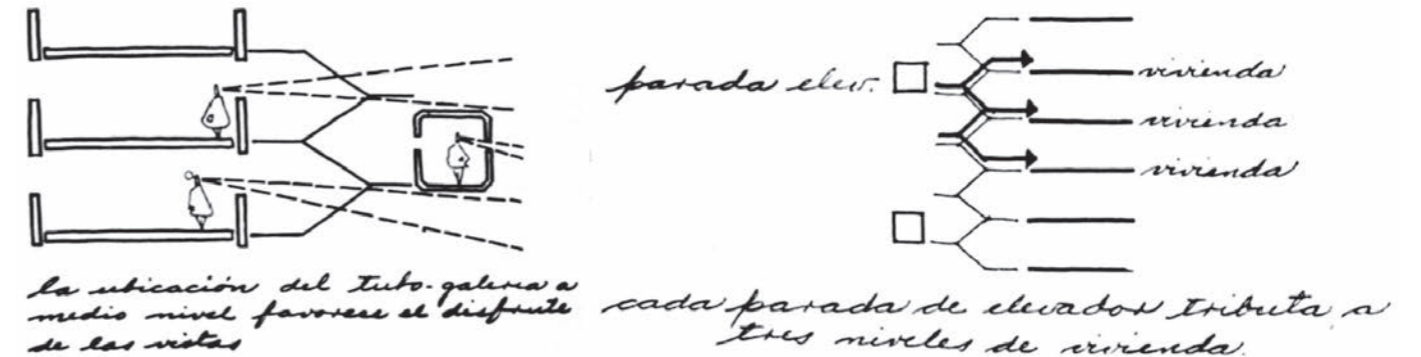 la ubicación del tubo-galeria a
medio nivel favorece el disfrute
de las vistas
parada elev.
vivienda
vivienda
vivienda
cada parada de elevador tributa a
tres niveles de vivienda.